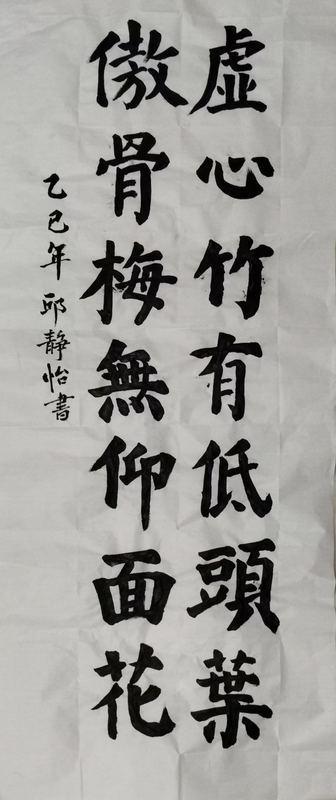 虛心竹有低頭葉
傲骨梅無仰面花
乙巳年邱靜怡書